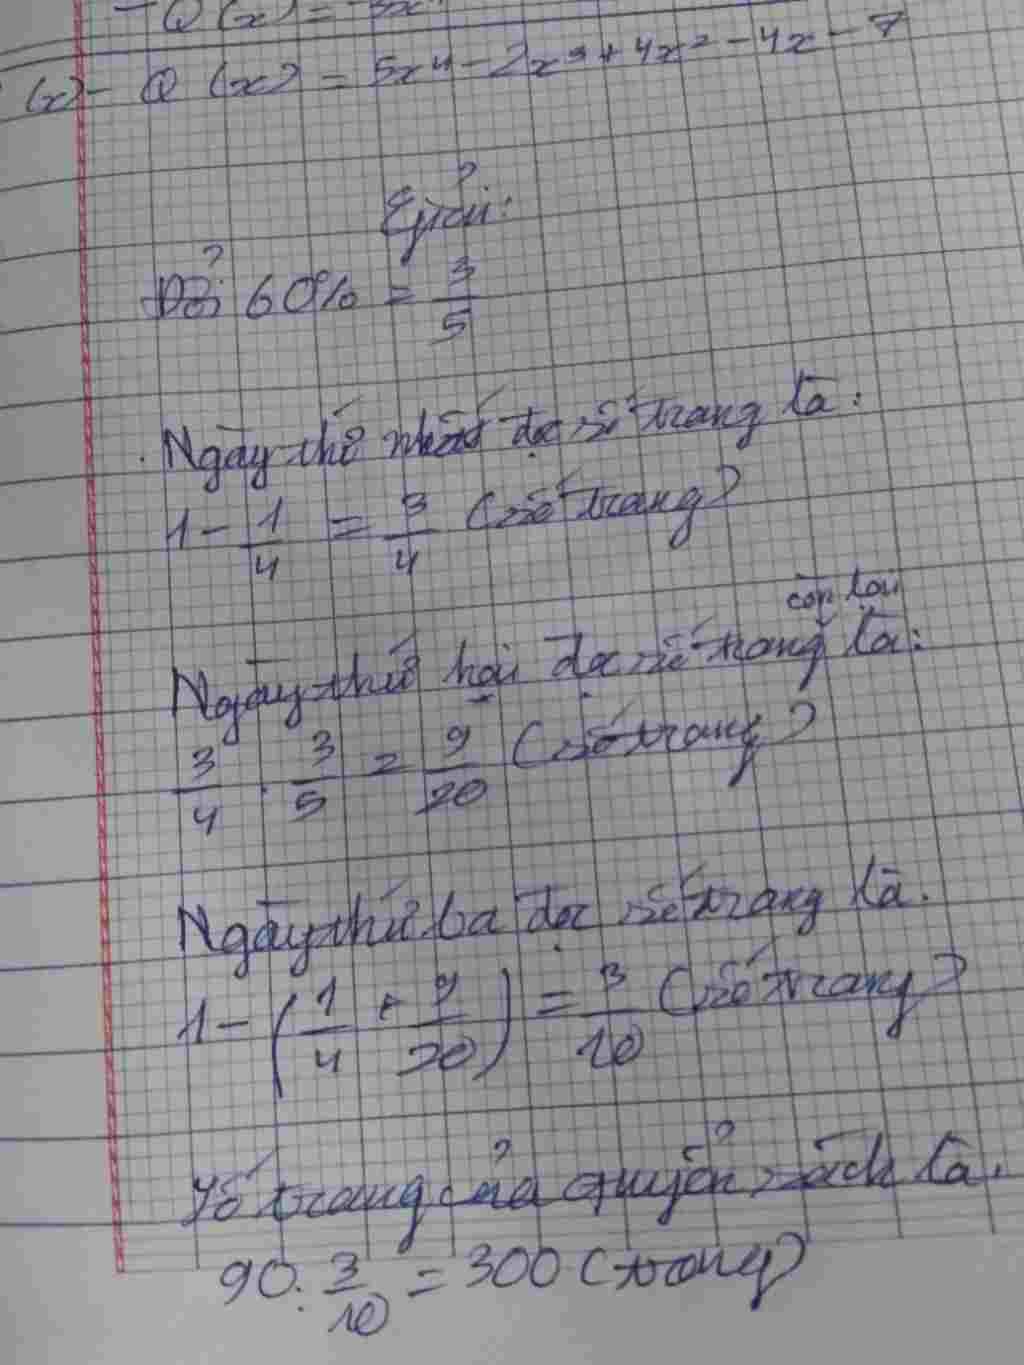 - Q(x) =
(x) - Q(x) = 5x⁴ - 2x³ + 4x² - 4x - 7
Giải:
Đổi 60% = 3/5
Ngày thứ nhất đọc số trang là:
1 - 1/4 = 3/4 (số trang)
còn lại
Ngày thứ hai đọc số trang là:
3/4 . 3/5 = 9/20 (số trang)
Ngày thứ ba đọc số trang là.
1 - (1/4 + 9/20) = 3/10 (số trang)
Số trang của quyển sách là.
90 : 3/10 = 300 (trang)